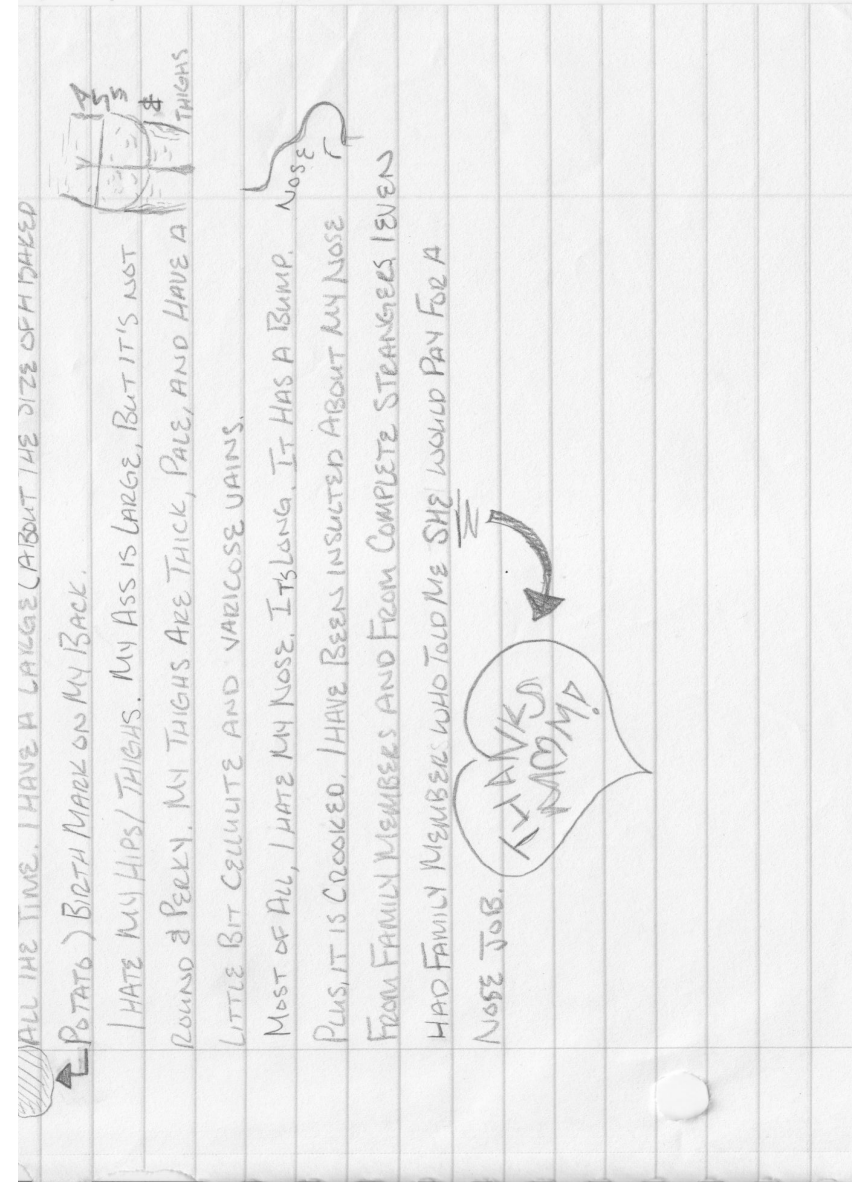 ALL THE TIME. I HAVE A LARGE (ABOUT THE SIZE OF A BAKED
POTATO) BIRTH MARK ON MY BACK.
I HATE MY HIPS/THIGHS. MY ASS IS LARGE, BUT IT'S NOT
ROUND & PERKY. MY THIGHS ARE THICK, PALE, AND HAVE A
LITTLE BIT CELLULITE AND VARICOSE VAINS.
ASS
&
THIGHS
MOST OF ALL, I HATE MY NOSE. ITS LONG. IT HAS A BUMP.
NOSE
PLUS, IT IS CROOKED. I HAVE BEEN INSULTED ABOUT MY NOSE
FROM FAMILY MEMBERS AND FROM COMPLETE STRANGERS. I EVEN
HAD FAMILY MEMBERS WHO TOLD ME SHE WOULD PAY FOR A
NOSE JOB.
THANKS
MOM!